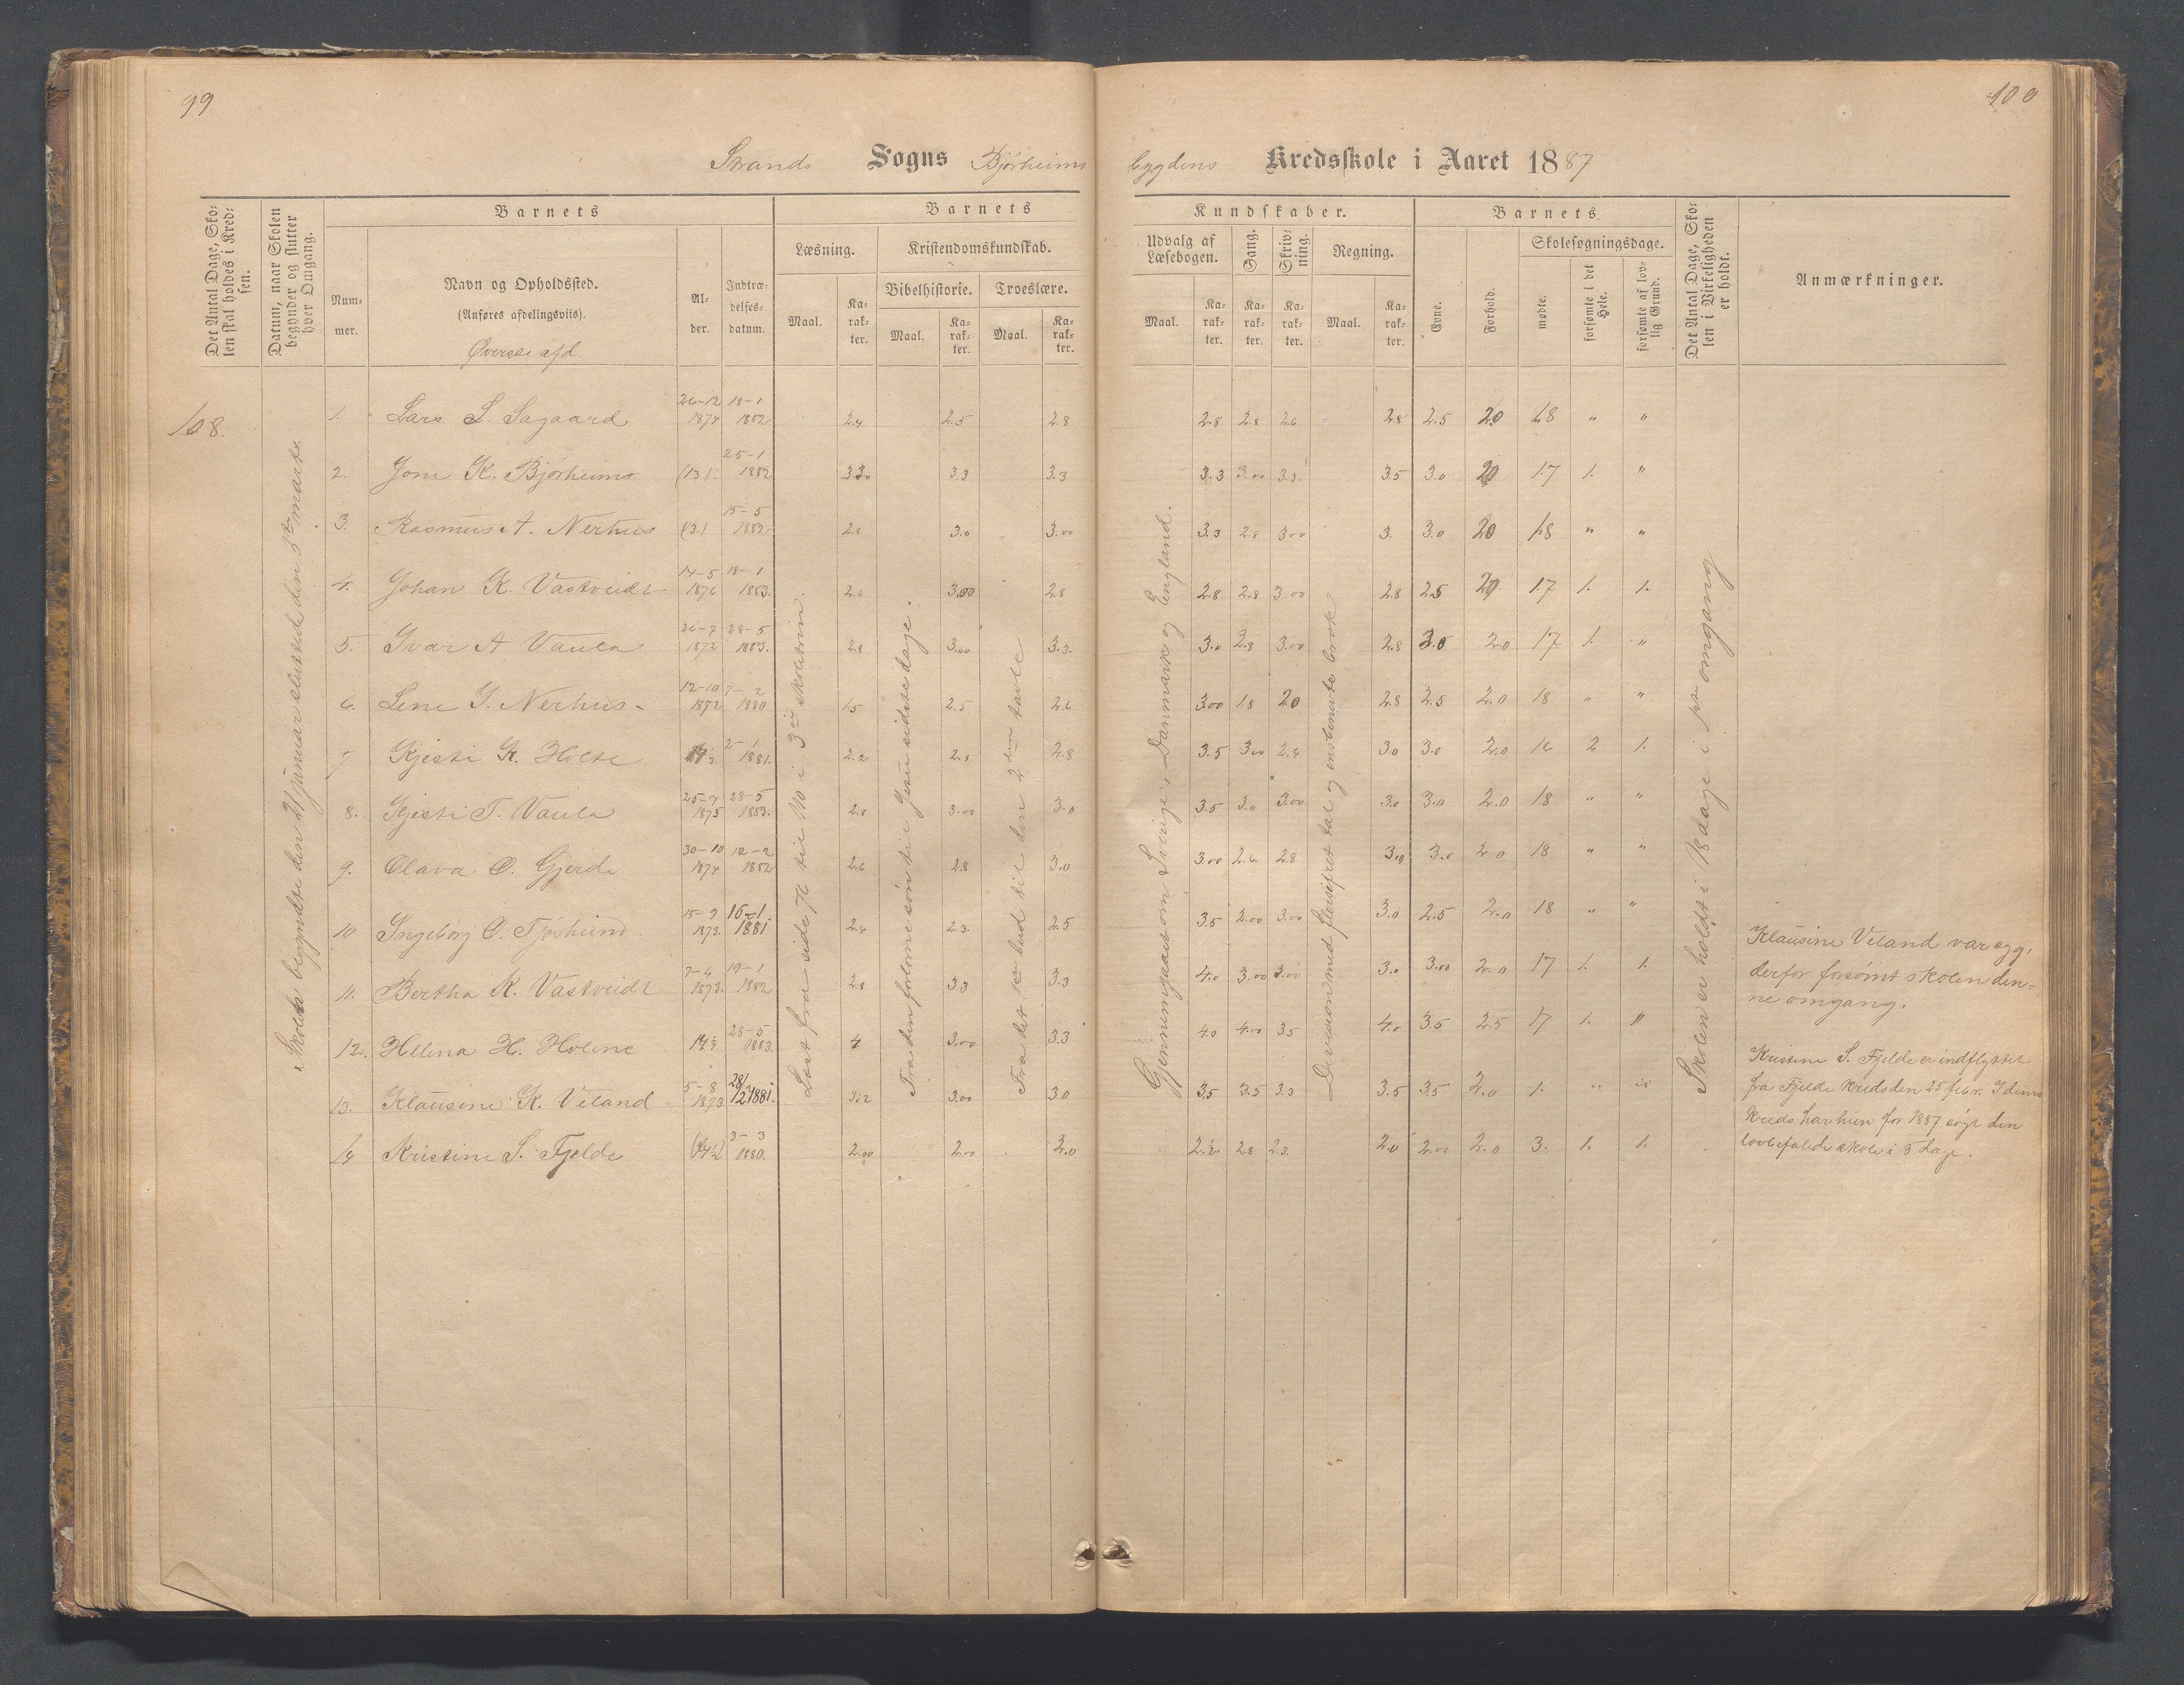 99
100
Strands Sogns Bjørheims bygdens Kredsskole i Aaret 1887
Det Antal Dage, Skolen skal holdes i Kredsen.
Datum, naar Skolen begynder og slutter hver Omgang.
Barnets
Nummer.
Navn og Opholdssted.
(Anføres afdelingsviis).
Øverste afd.
Alder.
Indtrædelses-datum.
Barnets Kundskaber.
Læsning.
Maal.
Karakter.
Kristendomskundskab.
Bibelhistorie.
Maal.
Karakter.
Troeslære.
Maal.
Karakter.
Udvalg af Læsebogen.
Maal.
Karakter.
Sang.
Karakter.
Skrivning.
Karakter.
Regning.
Maal.
Karakter.
Barnets
Evne.
Forhold.
Skolesøgningsdage.
mødte.
forsømte i det Hele.
forsømte af lovlig Grund.
Det Antal Dage, Skolen i Virkeligheden er holdt.
Anmærkninger.
108.
Skolen begyndte den 21 januar slutted den 8de marts.
Læst fra side 76 til 110 i 3die skoletrin.
Fra den forlorne søn til Jesu sidste dage.
Fra det 1ste bud til den 2den tavle
Gjennemgaaet om Sverige, Danmark og England.
Division med flersifret tal og ensbenevnte brøk
Skolen er holdt i 18 dage i 1ste omgang
1. Lars S. Sagaard 26-12 1874 18-1 1882 2.4 2.5 2.8 2.8 2.8 2.6 2.8 2.5 20 18 " "
2. Jone K. Bjørheims (13) 25-1 1882 3.30 3.3 3.3 3.3 3.00 3.3 3.5 3.0 20 17 1. "
3. Rasmus A. Nerhus (3.) 15-5 1882 2.8 3.0 3.00 3.3 2.8 3.00 3. 3.0 20 18 " "
4. Johan K. Vastveidt 14-5 1876 18-1 1883. 2.6 3.00 2.8 2.8 2.8 3.00 2.8 2.5 20 17 1. 1.
5. Ivar A Vaula 26-7 1872 28-5 1883. 2.8 3.00 3.3. 3.0 2.8 3.00 2.8 3.0 2.0 17 1. "
6. Lene J. Nerhus 12-10 1872 7-2 1880 1.5 2.5 2.6 3.00 1.8 20 2.8 2.5 2.0 18 " "
7 Kjesti K. Holte 14 2-1 1881. 2.2 2.8 2.8 3.5 3.00 2.4 3.0 3.0 2.0 16 2 1.
8. Kjesti T. Vaula 25-7 1875 28-5 1883. 2.8 3.00 3.0 3.5 3.0 3.00 3.0 3.0 2.0 18 " "
9. Olava O. Gjerde 30-10 1874 12-2 1882 2.6 2.8 3.0 3.00 2.6 2.8 3.0 3.0 2.0 18 " "
10 Ingeborg O. Tjøsheim 15-9 1873. 16-1. 1881 2.4 2.3. 2.5 3.5 2.00 3.00 3.0 2.5 2.0 18 " "
11. Bertha K. Vastveidt 7-6 1873. 19-1 1882 2.8 3.3 3.3 4.0 3.00 3.00 3.0 3.00 2.0 17 1. 1.
12. Hellina H. Holene 14 28-5 1883. 4 3.00 3.3 4.0 4.00 3.5 4.0 3.5 2.5 17 1. "
13. Klausine K. Veland 5-8 1873 28/2 1881. 3.2 3.00 3.0 3.5 3.5 3.3 3.5 3.5 2.0 1. " "
14 Kristine S. Fjelde (14) 3-3 1880. 2.00 2.00 2.0 2.2 2.8 2.3. 2.0 2.00 2.0 3. 1. 1.
Klausine Veland var syg,
derfor forsømt skolen den=
ne omgang.
Kristine S. Fjelde er indflyttet
fra Fjelde kreds den 25 febr. I denne
kreds har hun for 1887 søgt den
lovbefalede skole i 3 dage.